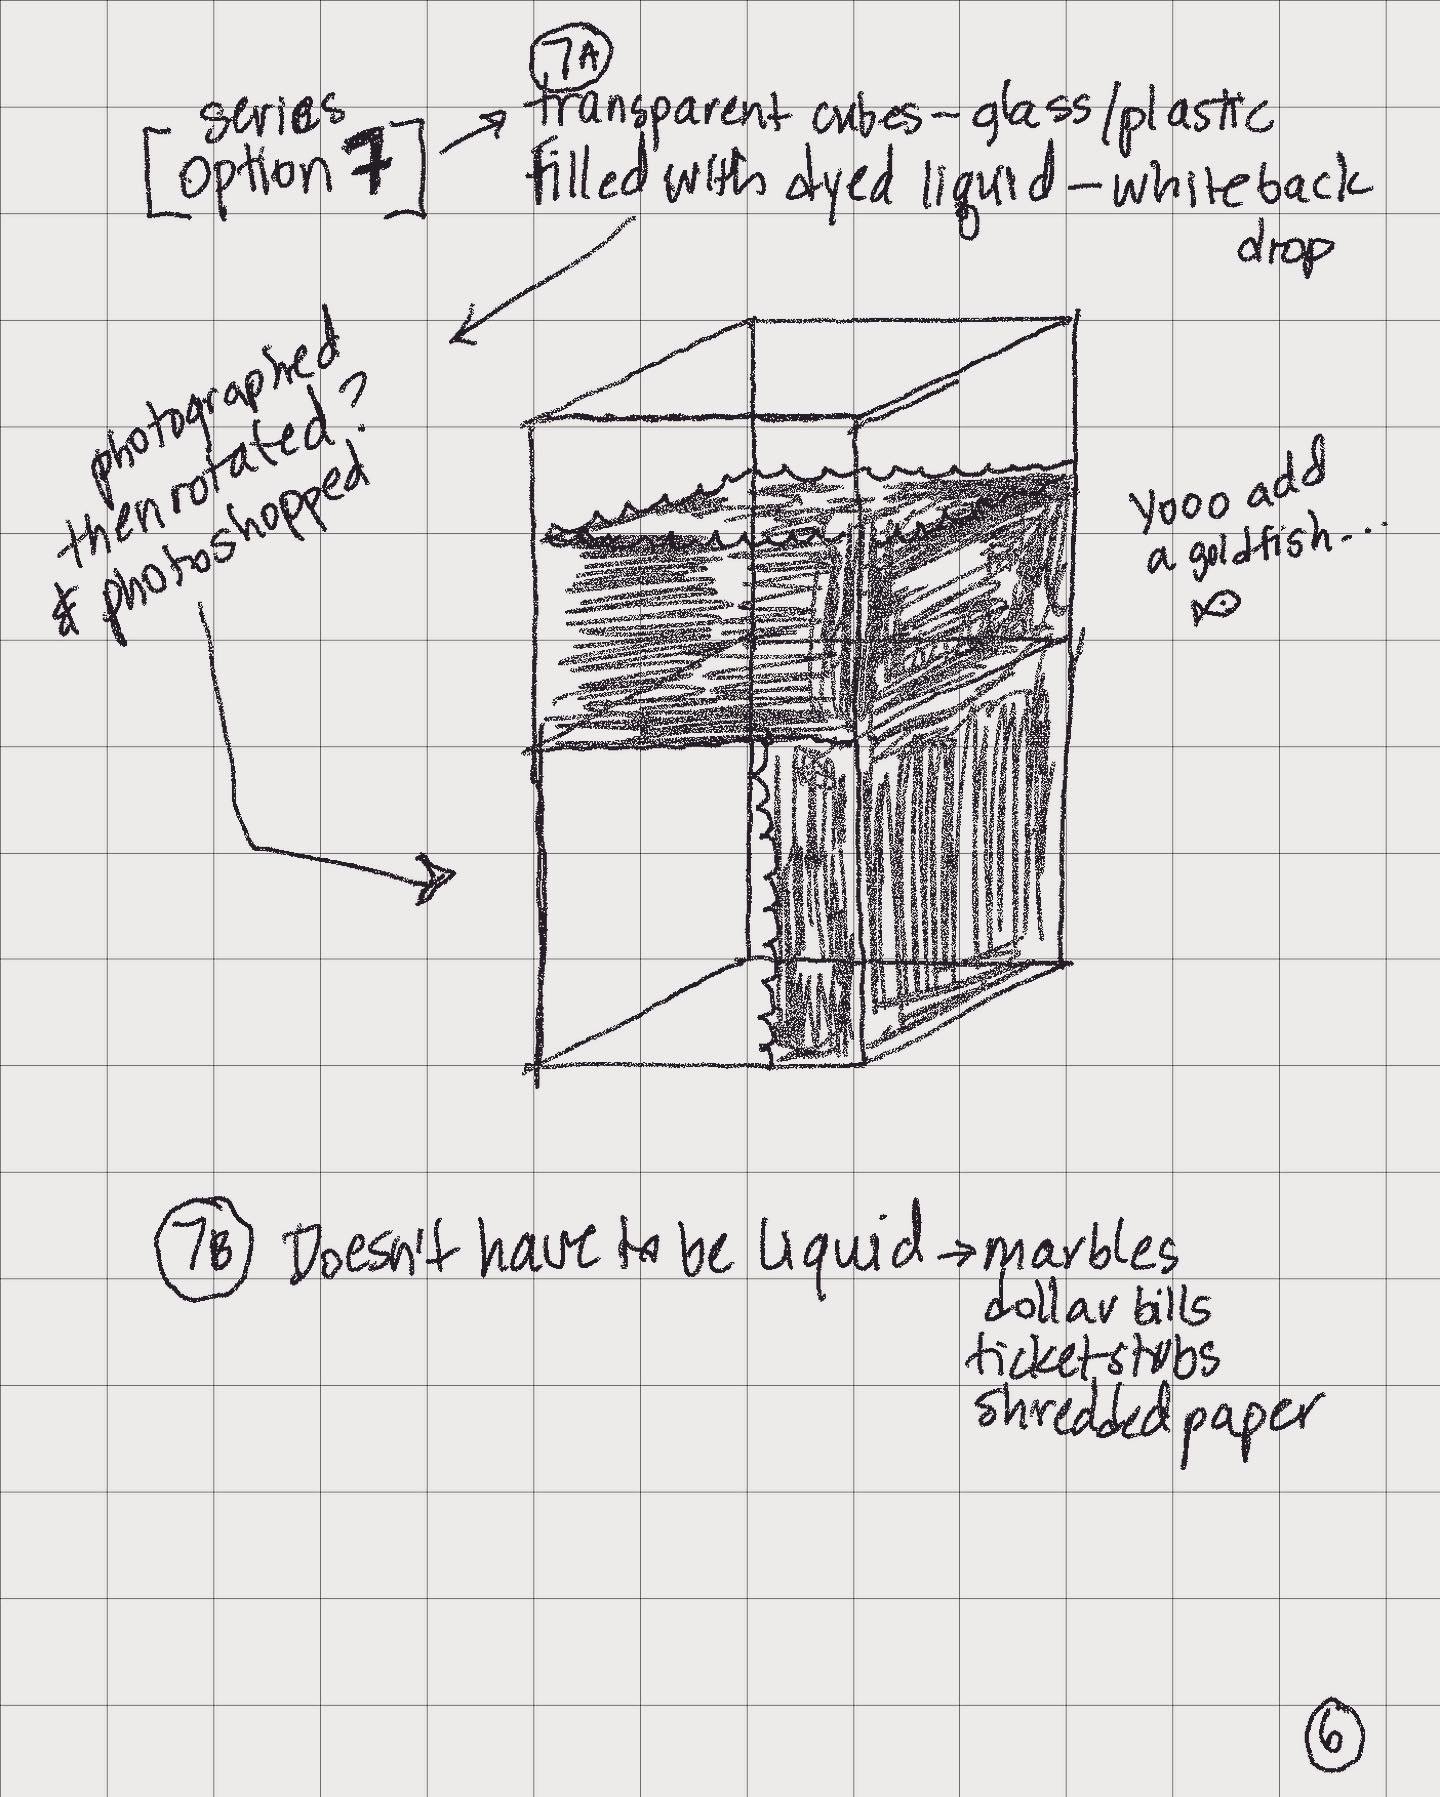 7A
series
[option 7]
transparent cubes - glass/plastic
filled with dyed liquid - white back
drop
photographed
then rotated?
& photoshopped
Yooo add
a goldfish...
7B Doesn't have to be liquid → marbles
dollar bills
ticket stubs
shredded paper
6